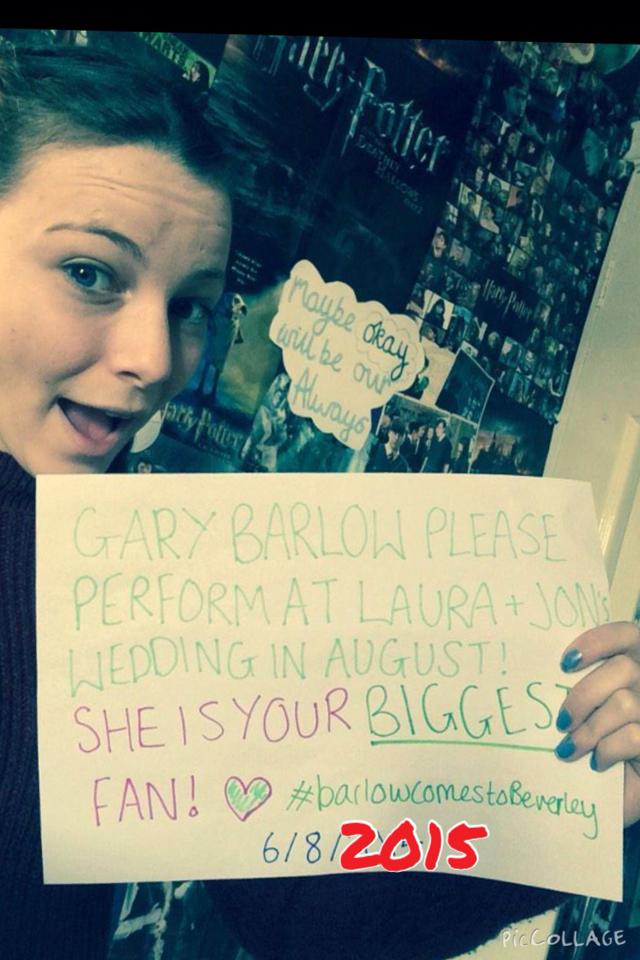 Harry Potter
Harry Potter
Maybe okay
will be our
Always
Harry Potter
GARY BARLOW PLEASE
PERFORM AT LAURA + JON's
WEDDING IN AUGUST!
SHE IS YOUR BIGGEST
FAN! #barlowcomestoBeverley
6/8/2015
PIC COLLAGE